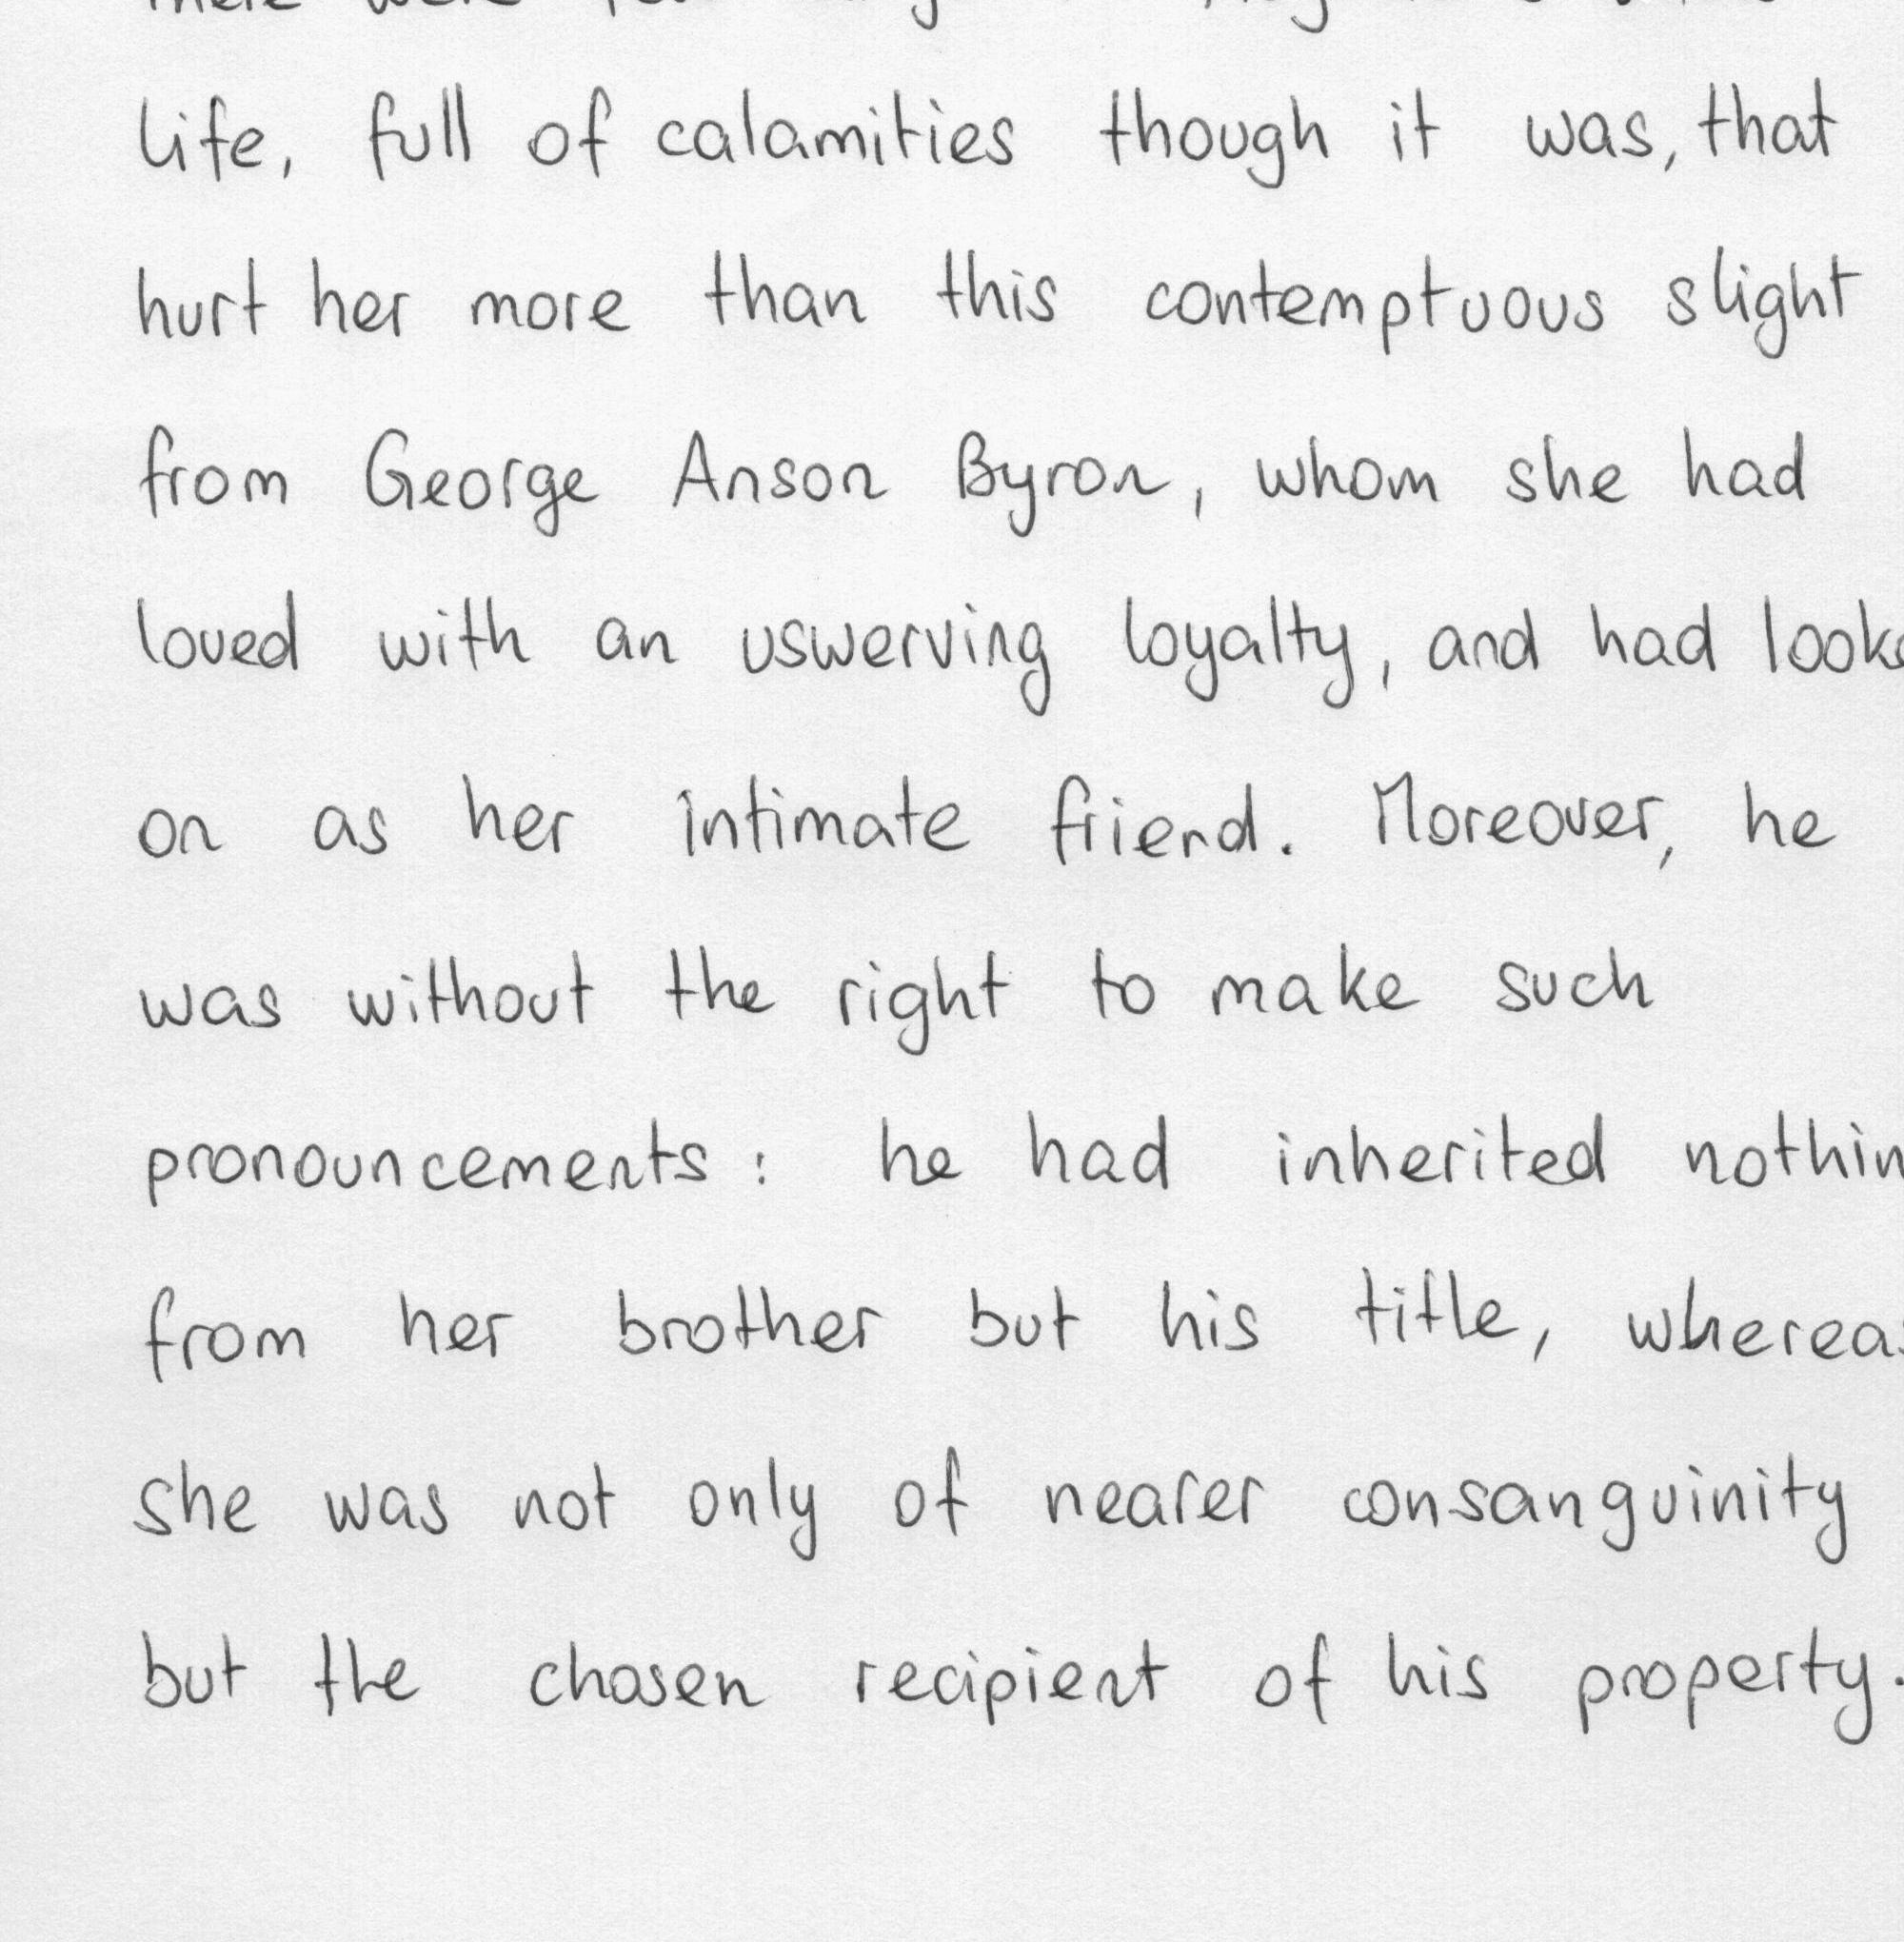 life, full of calamities though it was, that
hurt her more than this contemptuous slight
from George Anson Byron, whom she had
loved with an uswerving loyalty, and had
on as her intimate friend. Moreover, he
was without the right to make such
pronouncements : he had inherited
from her brother but his title, whereas
she was not only of nearer consanguinity
but the chosen recipient of his property.